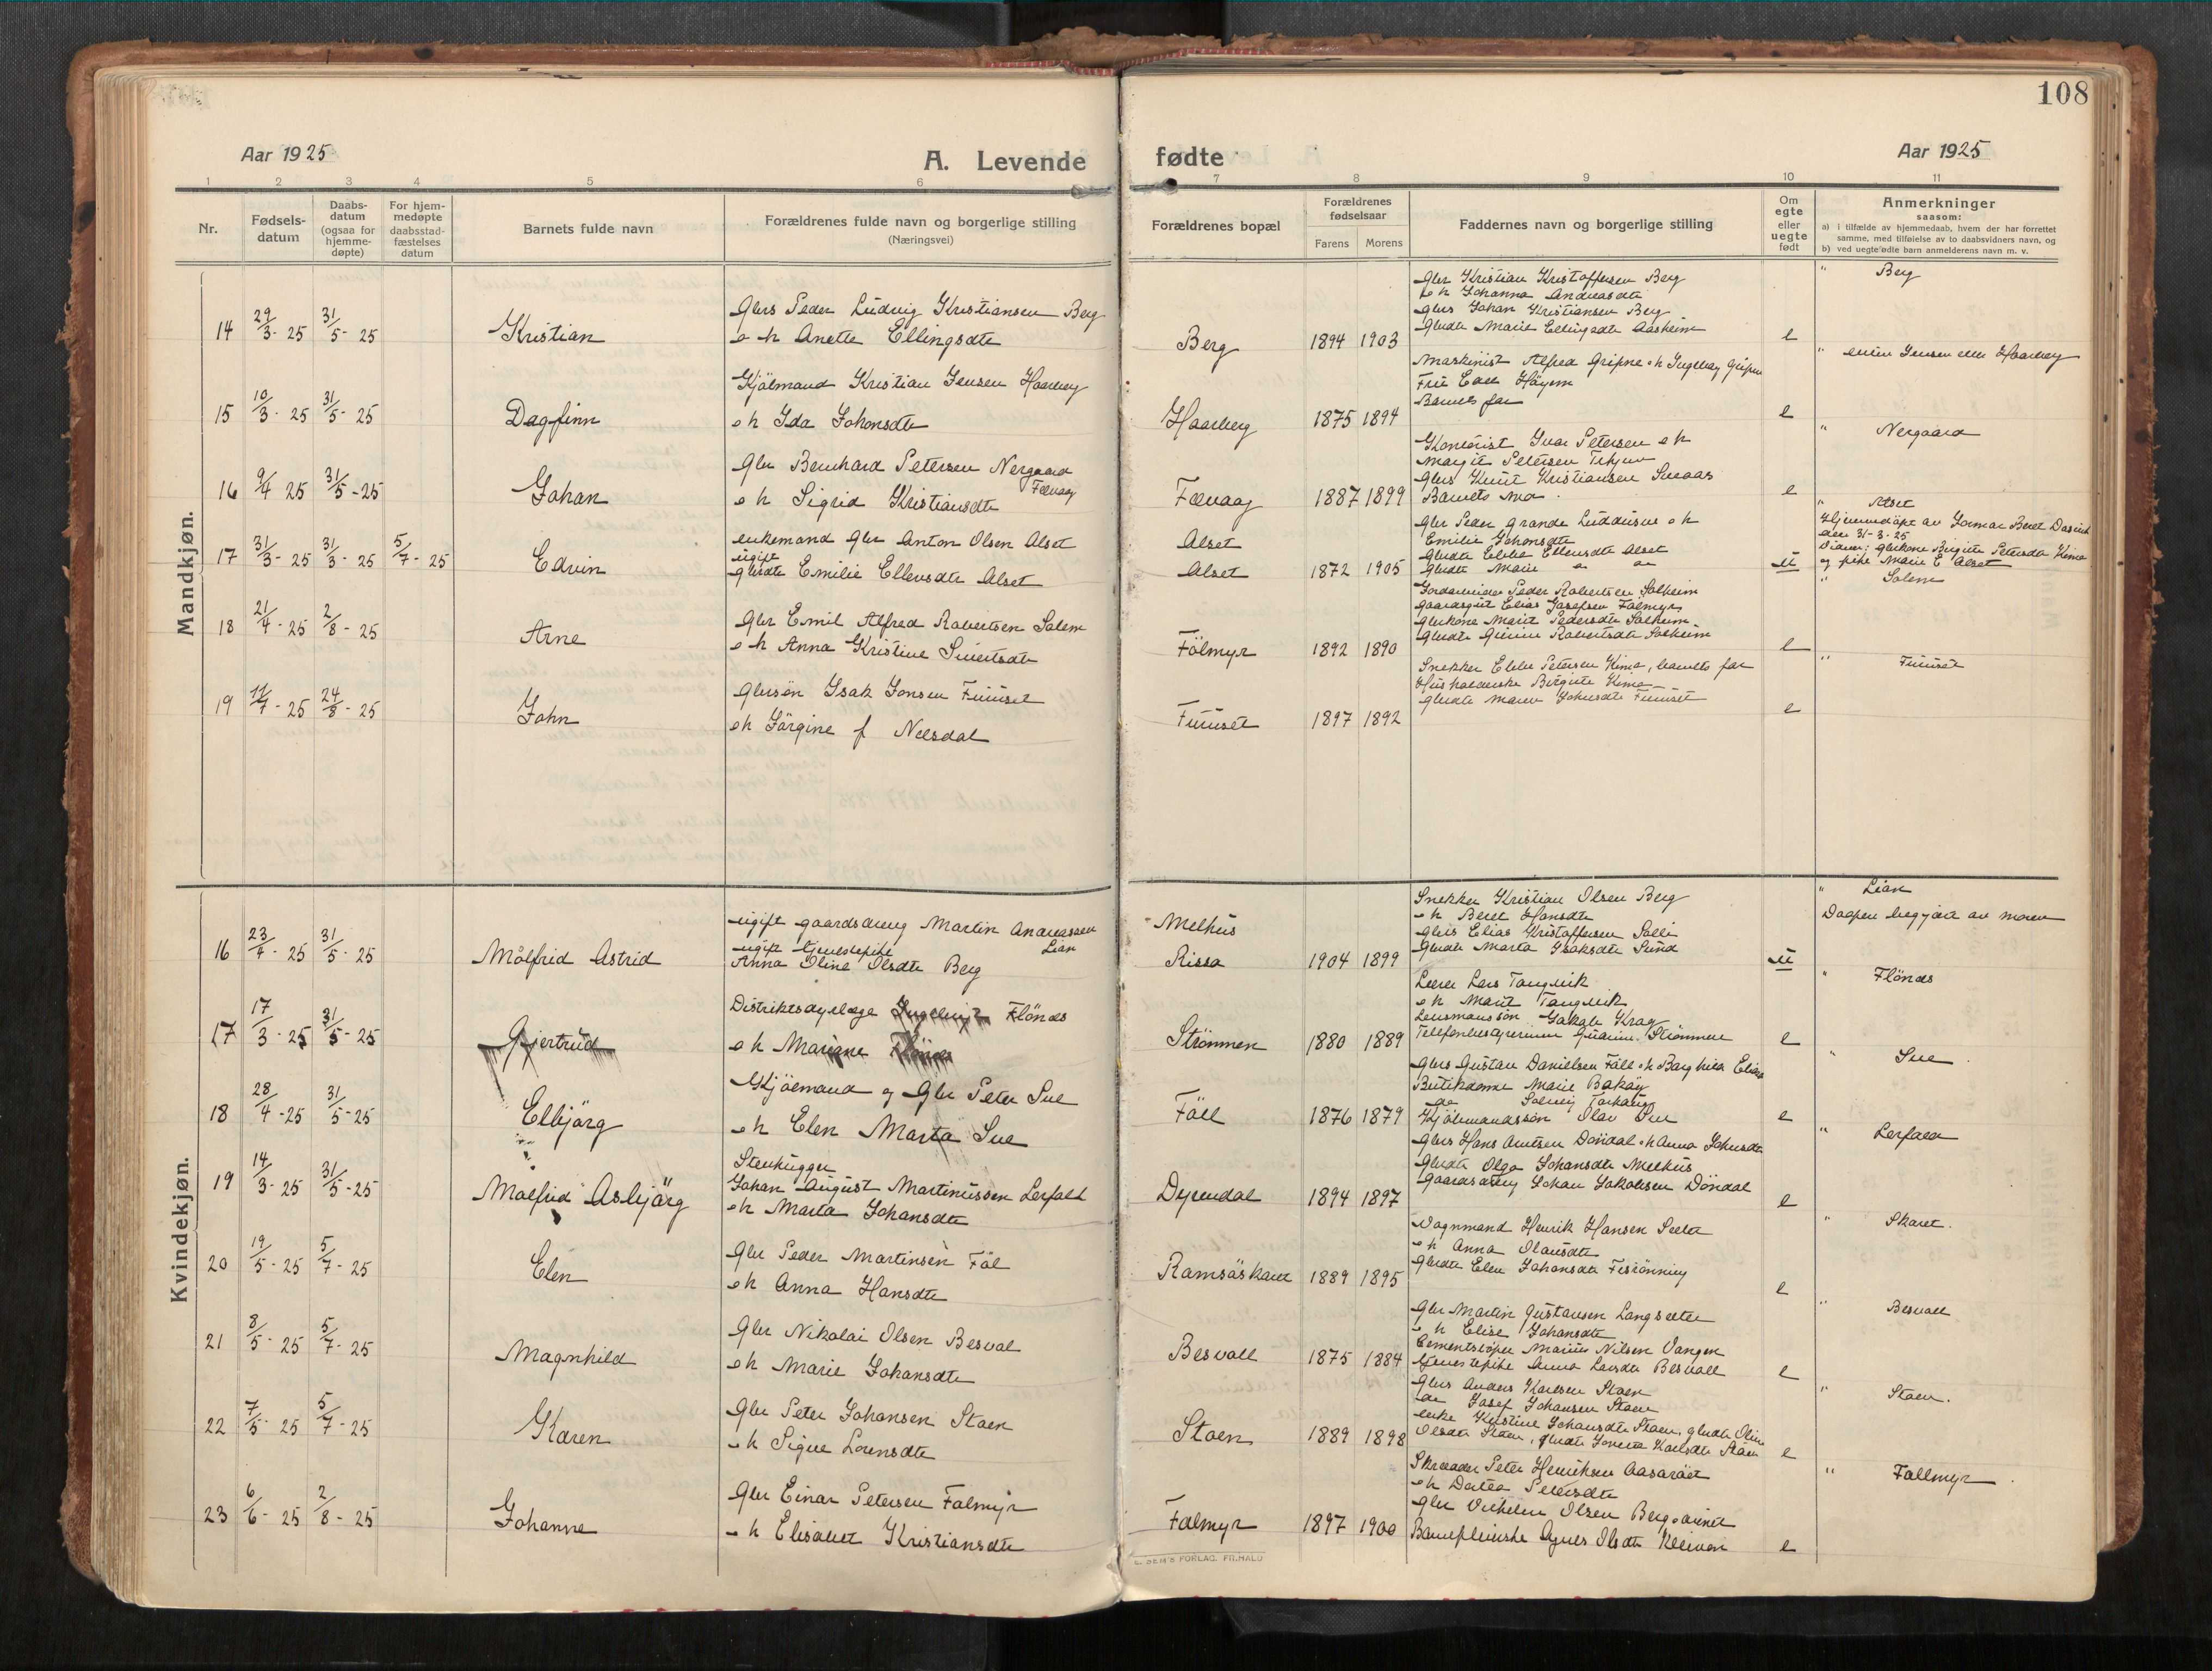 108
Aar 1925
A. Levende fødte
Aar 1925
1 2 3 4 5 6 7 8 9 10 11
Nr.
Fødsels-
datum
Daabs-
datum
(ogsaa for
hjemme-
døpte)
For hjem-
medøpte
daabsstad-
fæstelses
datum
Barnets fulde navn
Forældrenes fulde navn og borgerlige stilling
(Næringsvei)
Forældrenes bopæl
Forældrenes
fødselsaar
Farens Morens
Faddernes navn og borgerlige stilling
Om
egte
eller
uegte
født
Anmerkninger
saasom:
a) i tilfælde av hjemmedaab, hvem der har forrettet
samme, med tilføielse av to daabsvidners navn, og
b) ved uegte fødte barn anmelderens navn m. v.
Mandkjøn.
14 29/3-25 31/5-25 Kristian
Gbrs Peder Ludvig Kristiansen Berg
o h Anette Ellingsdtr
Berg 1894 1903
Gbr Kristian Kristoffersen Berg
o h Johanna Andreasdtr
Gbrs Johan Kristiansen Berg
Gbrdtr Marie Ellingsdtr Aasheim
e
" Berg
15 10/3-25 31/5-25 Dagfinn
Kjölmand Kristian Jensen Haarberg
o h Ida Johonsdtr
Haarberg 1875 1894
Maskinist Alfred Gripne o h Ingebrg Gripne
Fru Höyem
Barnets far
e
" enten Jensen eller Haarberg
16 9/4 25 31/5-25 Johan
Gbr Bernhard Petersen Nergaard
Fævaag
o h Sigrid Kristiansdtr
Fævaag 1887 1899
Kontorist Ivar Petersen o h
Margit Petersen
Gbrs Knut Kristiansen
Barnets mor
e
" Nergaard
17 31/3-25 31/3-25 5/7-25 Edvin
enkemand Gbr Anton Olsen Alset
ugift
gbrdtr Emilie Ellevsdtr Alset
Alset
Alset 1872 1905
Gbr Peder Grande o h
Emilie Johonsdtr
Gbrdtr Ebbe Ellevsdtr Alset
Gbrdtr Marie " "
u
" Alset
Hjemmedöpt av Jormor Beret
den 31-3-25
Vidner: Gbrkone Birgitte Petersdtr Kimo
og pike Marie E Alset
18 21/4-25 2/8-25 Arne
Gbr Emil Alfred Robertsen Solem
o h Anna Kristine Sivertsdtr
Fölmyr 1892 1890
Jordarbeider Peder Robertsen Solheim
gaardsgut Elias Josefsen Fölmyr
Gbrkone Marit Pedersdtr Solheim
Gbrdtr Robertsdtr Solheim
e
" Solem
19 11/7-25 24/8-25 John
Gbrsön Isak Jonsen Fuuset
o h Jörgine f Neesdal
Fuuset 1897 1892
Snekker Ebbe Petersen Kimo, barnets far
Husholderske Birgitte Kimo
Gbrdtr Maren Johnsdtr Fuuset
e
" Fuuset
Kvindekjøn.
16 23/4-25 31/5-25 Målfrid Astrid
ugift gaardsdreng Martin Andreassen
Lian
ugift tjenestepike
Anna Oline Olsdtr Berg
Melhus
Rissa 1904 1899
Snekker Kristian Olsen Berg
o h Beret Hansdtr
Gbrs Elias Kristoffersen Solli
Gbrdtr Marta Isaksdtr Sund
u
" Lian
Daapen begjært av moren
17 17/3-25 31/5-25 Gjertrud
Distriktsdyrlæge Flönes
o h Mariane
Strömmen 1880 1889
Lærer Lars Tangvik
o h Marit Tangvik
Lensmanssön Jakob Krog
Telefonbestyrerinne Strömmen
e
" Flönes
18 28/4-25 31/5-25 Elbjörg
Kjölmand og Gbr Peter Sve
o h Elen Marta Sve
Föll 1876 1879
Gbrs Gustav Danielsen Föll o h Borghild
Butikdame Marie Bakøy
do Solveig
Kjölmandssön Olav Sve
e
" Sve
19 14/3-25 31/5-25 Målfrid Asbjörg
Stenhugger
Johan August Martinussen Lerfald
o h Marta Johansdtr
Dyrendal 1894 1897
Gbrs Hans Arntsen Döndal o h Anna Johnsdtr
Gbrdtr Olga Johansdtr Melhus
Gaardsdreng Johan Jakobsen Döndal
e
" Lerfald
20 19/5-25 5/7-25 Elen
Gbr Peder Martinsen Föll
o h Anna Hansdtr
Ramsöskaret 1889 1895
Vognmand Henrik Hansen
o h Anna Olausdtr
Gbrdtr Elen Johansdtr
e
" Skaret.
21 8/5-25 5/7-25 Magnhild
Gbr Nikolai Olsen Besvol
o h Marie Johansdtr
Besvoll 1875 1884
Gbr Martin Gustavsen Langsæter
o h Elise Johansdtr
Cementstöper Marius Nilsen Vangen
tjenestepike Anna Larsdtr Besvoll
e
" Besvoll
22 7/5-25 5/7-25 Karen
Gbr Peter Johansen Stoen
o h Signe Lorensdtr
Stoen 1889 1898
Gbrs Anders Karlsen Stoen
do Josef Johansen Stoen
enke Kristine Johansdtr Stoen, gbrdtr Oline
Olsdtr Stoen, gbrdtr Karlsdtr Stoen
e
" Stoen.
23 6/6-25 2/8-25 Johanne
Gbr Einar Petersen Folmyr
o h Elisabet Kristiansdtr
Folmyr 1897 1900
Skrædder Peter Henriksen
o h Dortea Petersdtr
Gbr Vilhelm Olsen Berg
Barnepleierske Agnes Olsdtr
e
" Follmyr
SEM'S FORLAG. FR.HALD